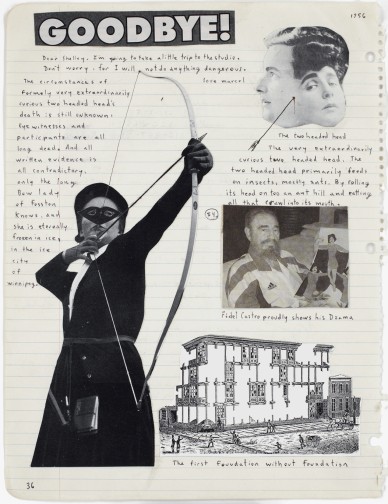 GOODBYE!
1956
Dear Shelley, I'm going to take a little trip to the studio.
Don't worry, for I will not do anything dangerous.
love marcel
The circumstances of
formely very extraordinarily
curious two headed head's
death is still unknown:
Eyewitnesses and
participants are all
long dead And all
written evidence is
all contradictory.
only the long
Bow lady
of Fosston
Knows, and
she is eternally
frozen in icey
in the ice
city
of
winnipeg.
The two headed head
The very extraordinarily
curious two headed head. The
two headed head primarily feeds
on insects, mostly ants. By rolling
its head on too an ant hill and eatting
all that crawl into its mouth.
Fidel Castro proudly shows his Drama
The first Foundation without foundation
36